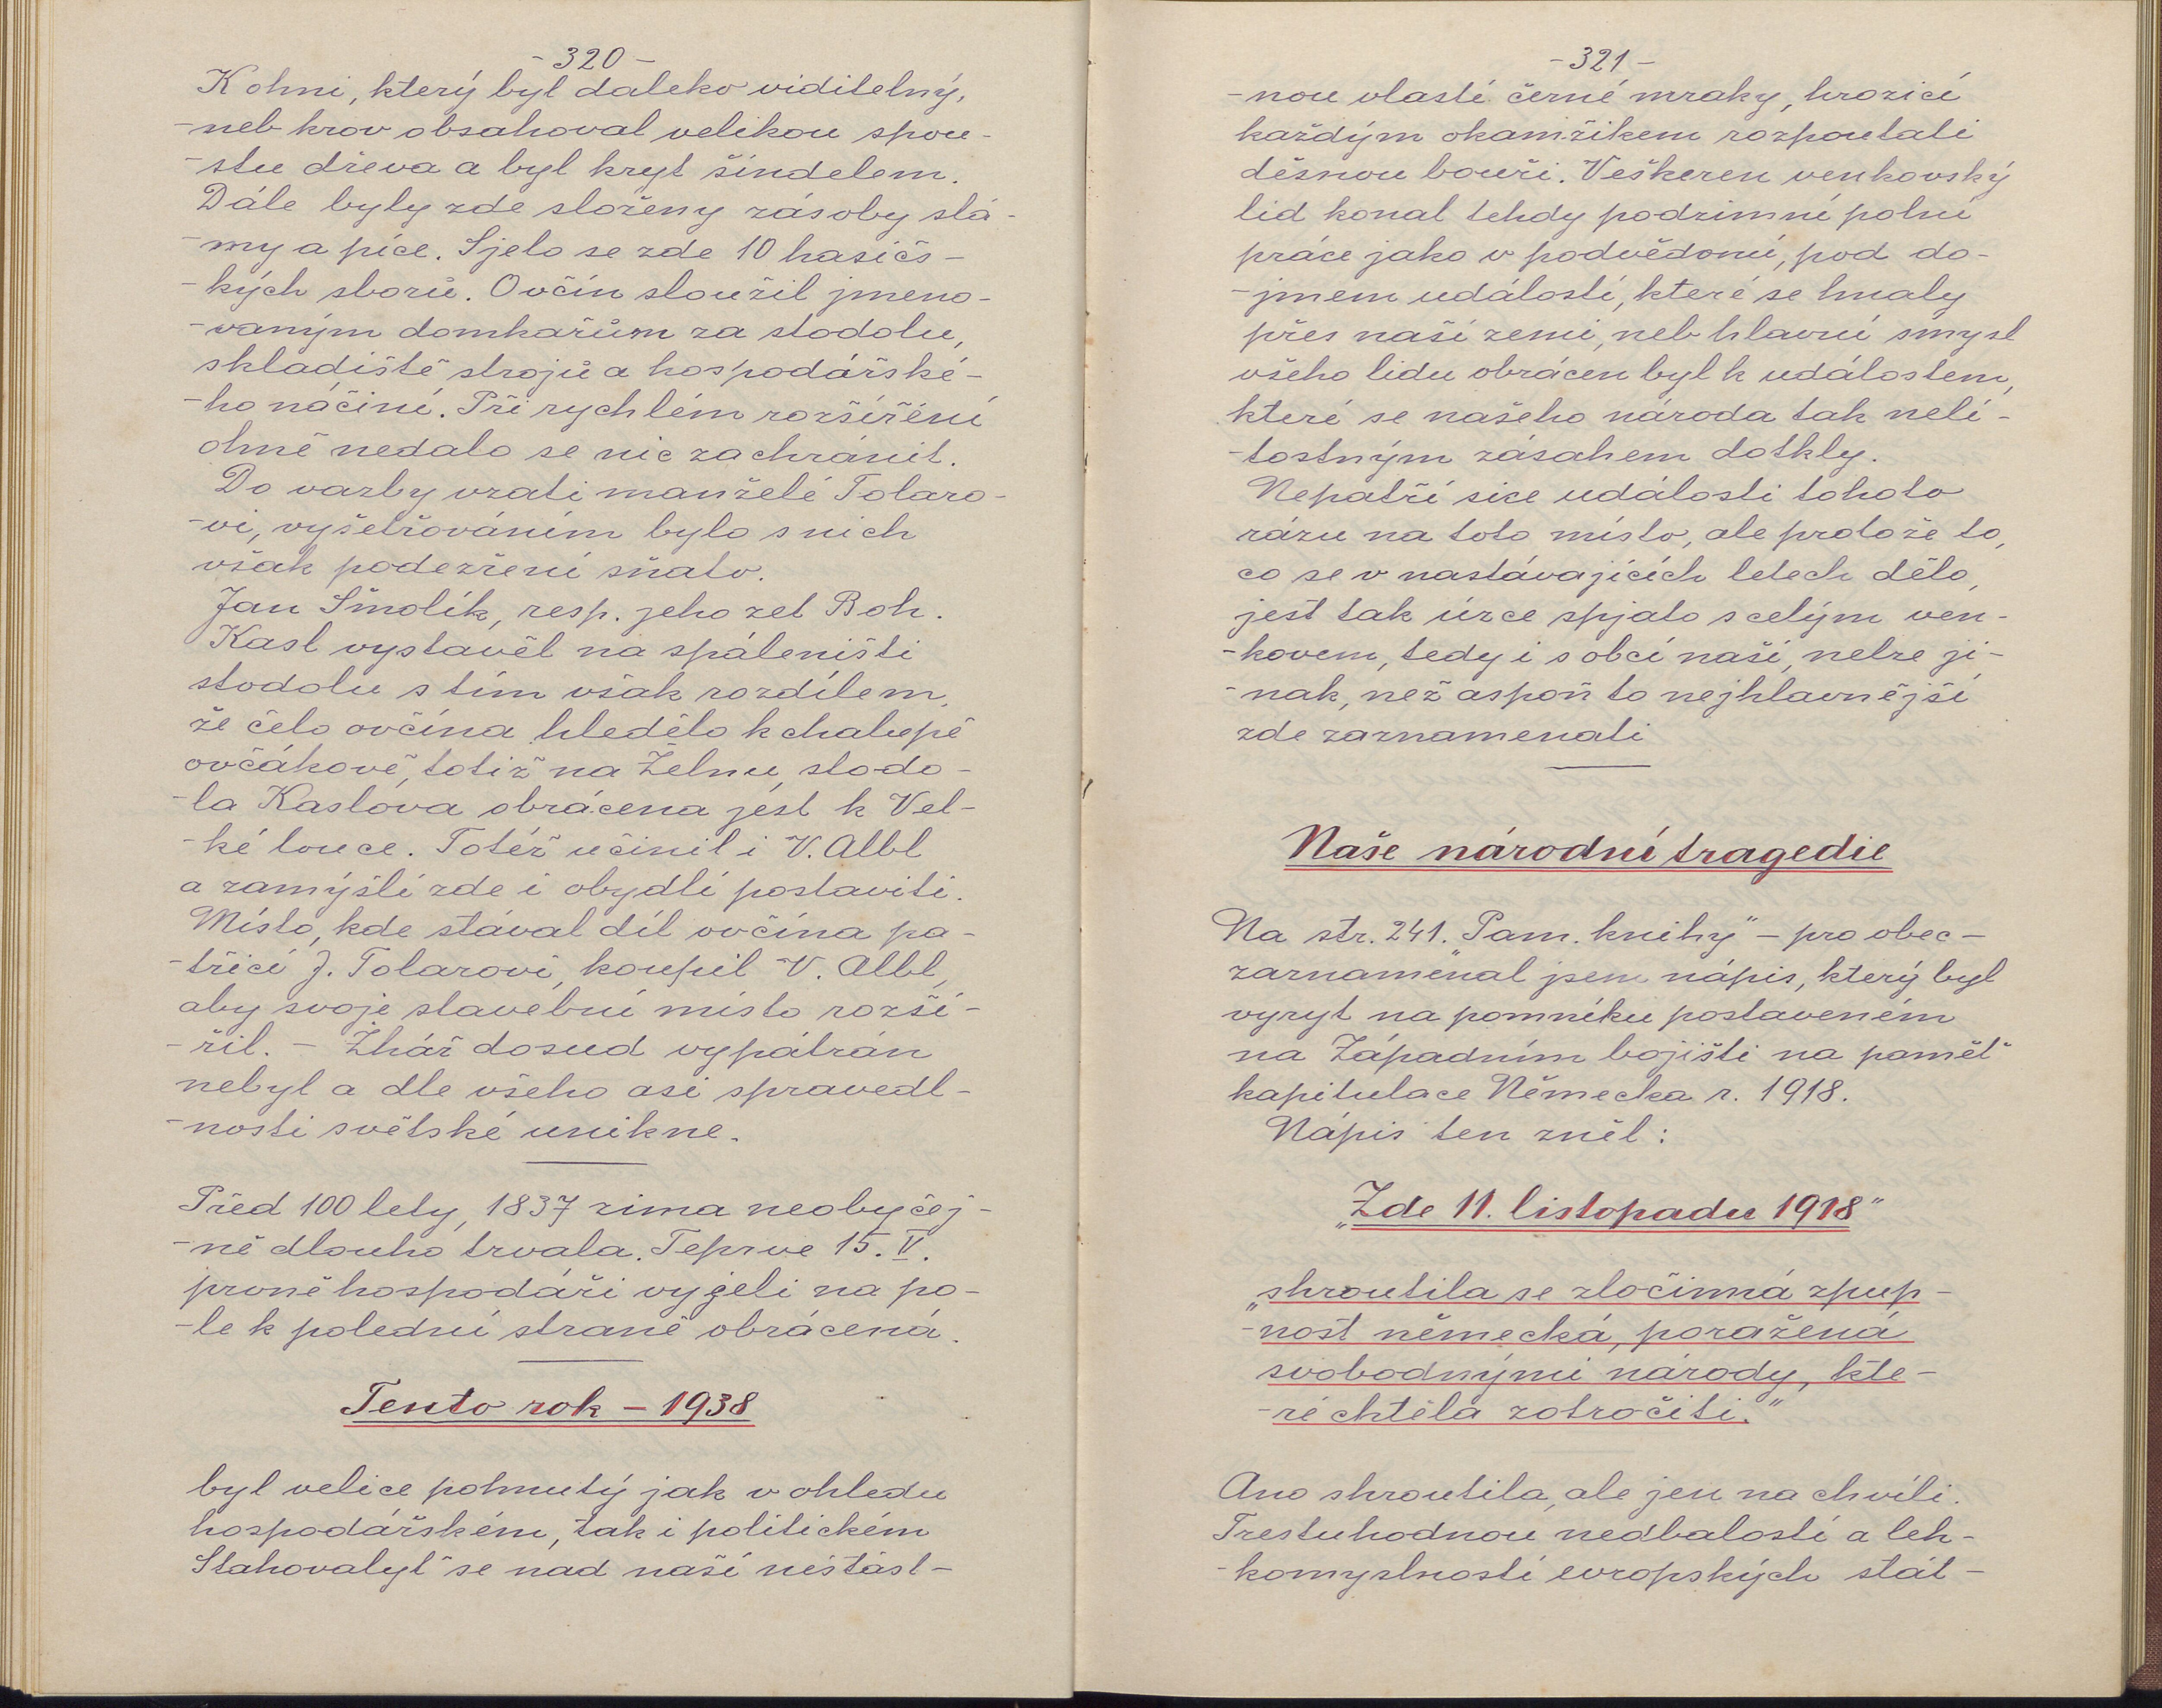 - 320 -
K ohni, který byl daleko viditelný,
-neb krov obsahoval velikou spou-
-stu dřeva a byl kryt šindelem.
Dále byly zde složeny zásoby slá-
-my a píce. Sjelo se zde 10 hasičs-
-kých sborů. Ovčín sloužil jmeno-
-vaným domkařům za stodolu,
skladiště strojů a hospodářské-
-ho náčiní. Při rychlém rozšíření
ohně nedalo se nic zachránit.
Do vazby vzati manželé Tolaro-
-vi, vyšetřováním bylo s nich
však podezření sňato.
Jan Smolík, resp. jeho zeť Boh.
Kasl vystavěl na spáleništi
stodolu s tím však rozdílem,
že čelo ovčína hledělo k chalupě
ovčákově, totiž na Želnu, stodo-
-la Kaslova obrácena jest k Vel-
-ké louce. Totéž učinil i V. Albl
a zamýšlí zde i obydlí postaviti.
Místo, kde stával díl ovčína pa-
-třící J. Tolarovi, koupil V. Albl,
aby svoje stavební místo rozší-
-řil. - Žhář dosud vypátrán
nebyl a dle všeho asi spravedl-
-nosti světské unikne.
Před 100 lety, 1837 zima neobyčej-
-ně dlouho trvala. Teprve 15. V.
prvně hospodáři vyjeli na po-
-le k polední straně obrácená.
Tento rok - 1938
byl velice pohnutý jak v ohledu
hospodářském, tak i politickém
Stahovalyť se nad naší nešťast-
- 321 -
-nou vlastí černé mraky, hrozící
každým okamžikem rozpoutati
děsnou bouři. Veškeren venkovský
lid konal tehdy podzimní polní
práce jako v podvědomí, pod do-
-jmem událostí, které se hnaly
přes naši zemi, neb hlavní smysl
všeho lidu obrácen byl k událostem,
které se našeho národa tak nelí-
-tostným zásahem dotkly.
Nepatří sice události tohoto
rázu na toto místo, ale protože to,
co se v nastávajících letech dělo,
jest tak úzce spjato s celým ven-
-kovem, tedy i s obcí naší, nelze ji-
-nak, než aspoň to nejhlavnější
zde zaznamenati
Naše národní tragedie
Na str. 241. „Pam. knihy" - pro obec -
zaznamenal jsem nápis, který byl
vyryt na pomníku postaveném
na Západním bojišti na paměť
kapitulace Německa r. 1918.
Nápis ten zněl:
„Zde 11. listopadu 1918"
„shroutila se zločinná zpup-
-nost německá, poražená
svobodnými národy, kte-
-ré chtěla zotročiti."
Ano shroutila, ale jen na chvíli.
Trestuhodnou nedbalostí a leh-
-komyslností evropských stát-